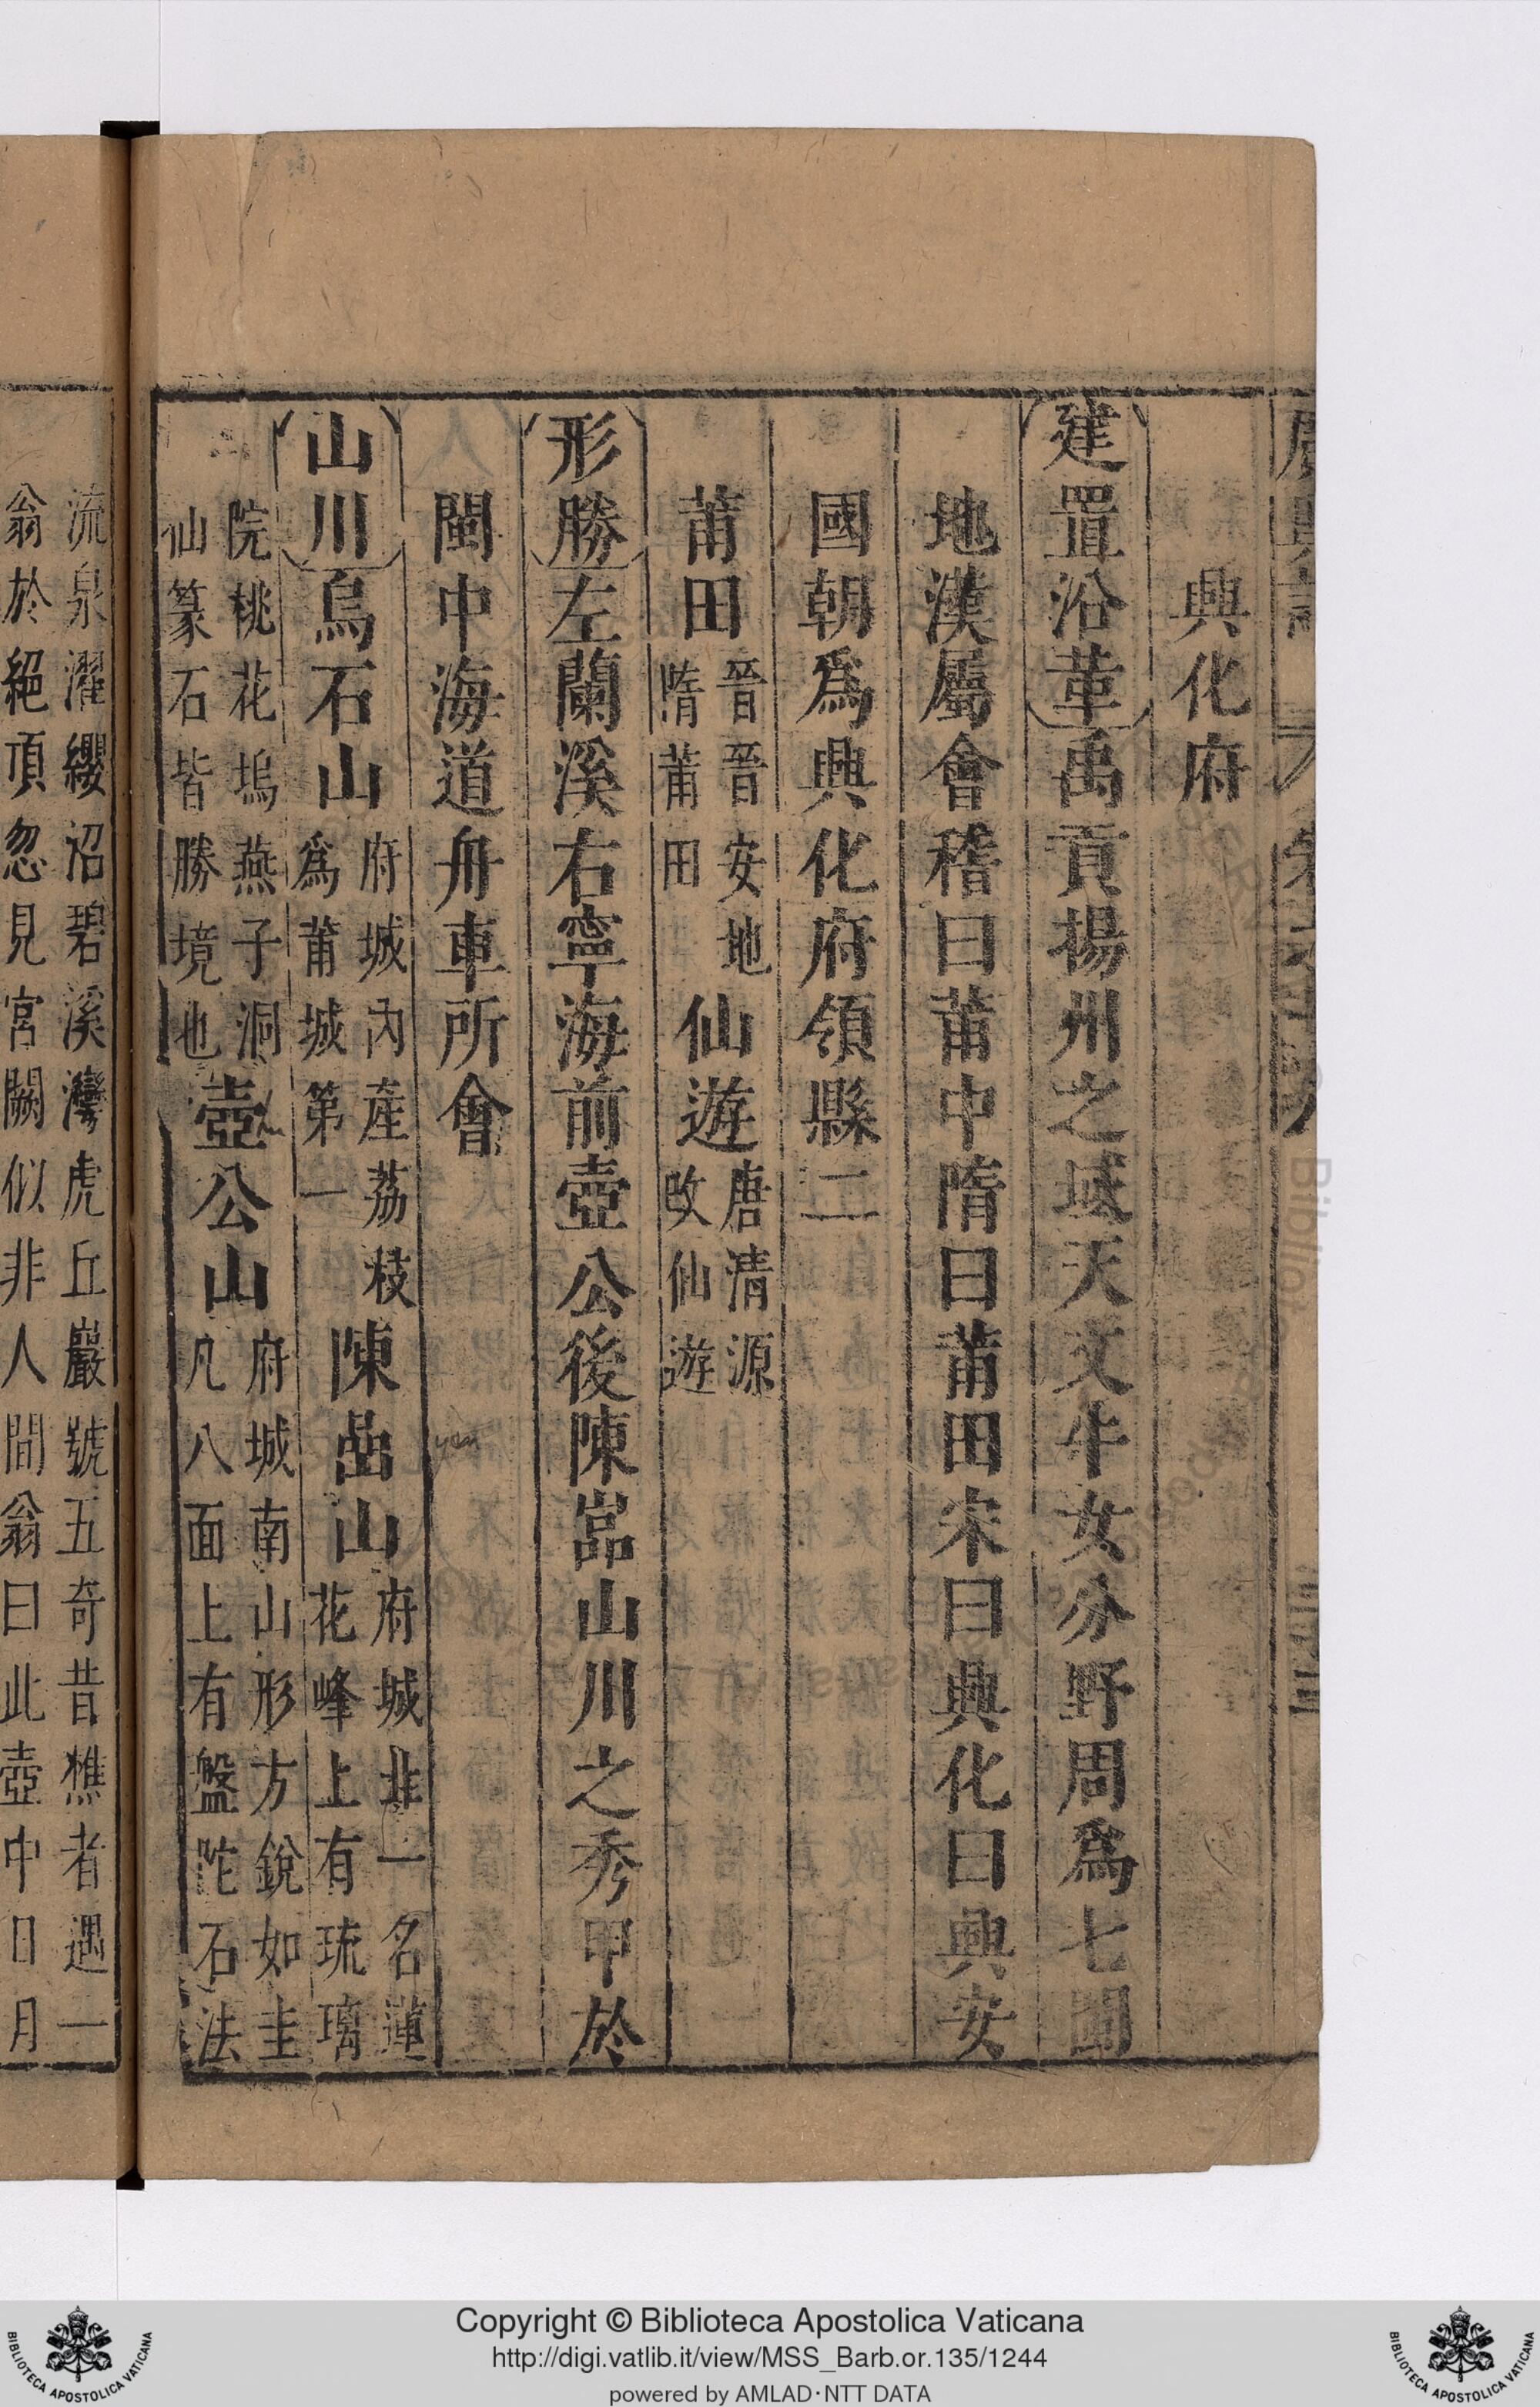 興化府
建置沿革禹貢揚州之域天文牛女分野周爲七閩
地漢屬會稽曰莆中隋曰莆田宋曰興化曰興安
國朝爲興化府領縣二
莆田晉晉安地隋莆田仙遊唐清源改仙遊
形勝左蘭溪右寧海前壺公後陳嵓山川之秀甲於
閩中海道舟車所會
山川烏石山府城內產荔枝爲莆城第一陳嵒山府城北一名蓮花峰上有琉璃
院桃花塢燕子洞仙篆石皆勝境也壺公山府城南山形方銳如圭凡八面上有盤陀石法
流泉濯纓沼碧溪灣虎丘巖號五奇昔樵者遇一
翁於絕頂忽見宮闕似非人間翁曰此壺中日月
yen
Copyright © Biblioteca Apostolica Vaticana
http://digi.vatlib.it/view/MSS_Barb.or.135/1244
powered by AMLAD·NTT DATA
BIBLIOTECA APOSTOLICA VATICANA
BIBLIOTECA APOSTOLICA VATICANA